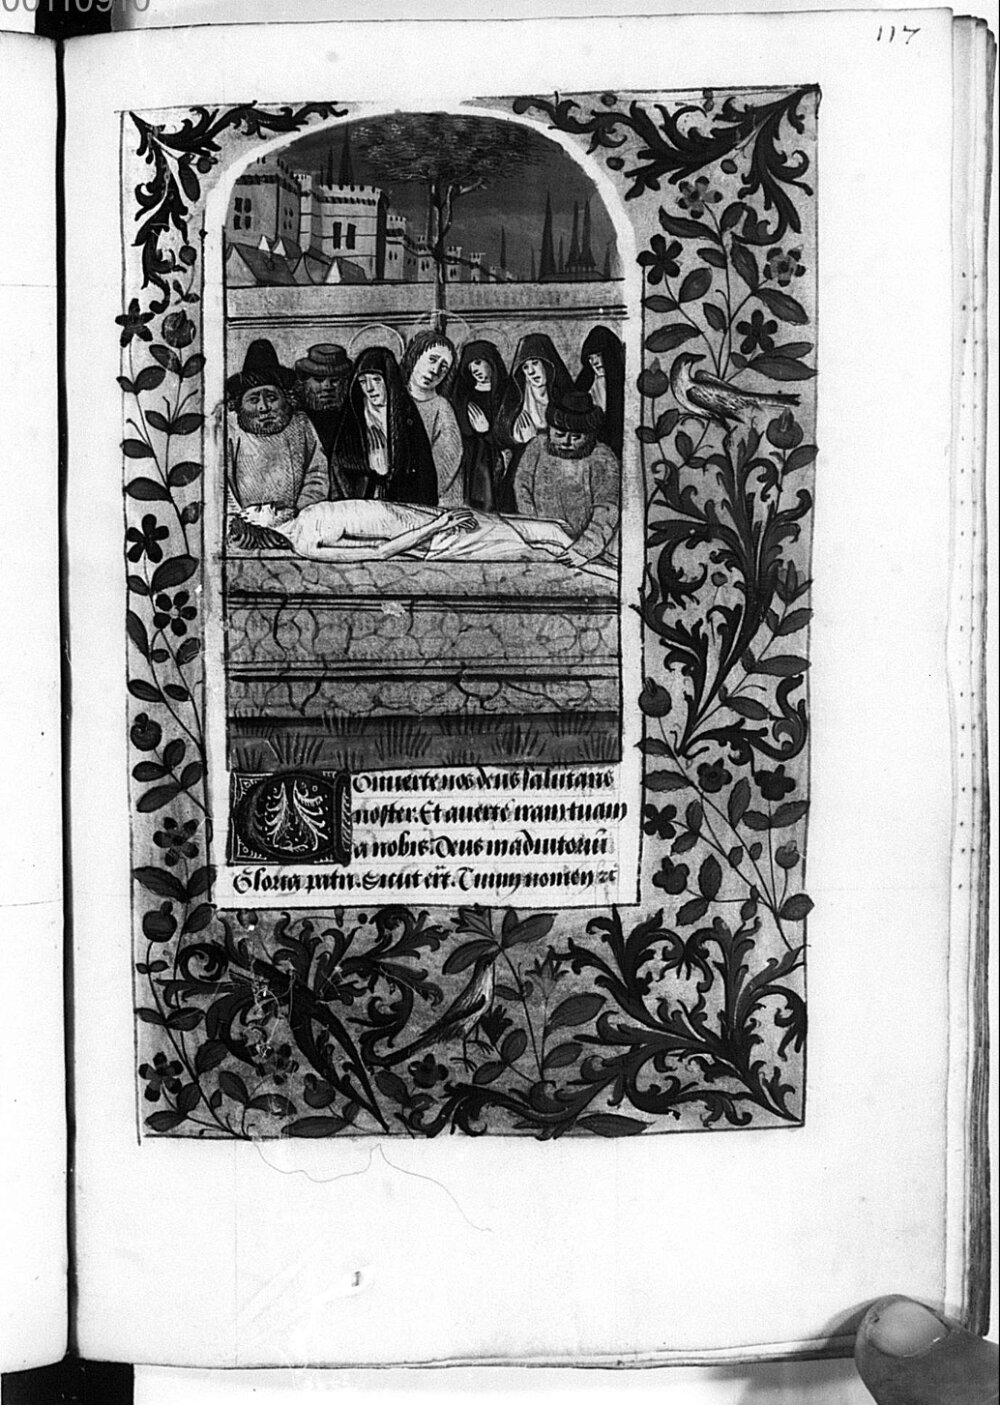 00110910
117
Conuerte nos deus salutaris
noster. Et auerte iram tuam
a nobis. Deus in adiutoriū
Gloria patri. Sicut er̄t. Tuum nomen